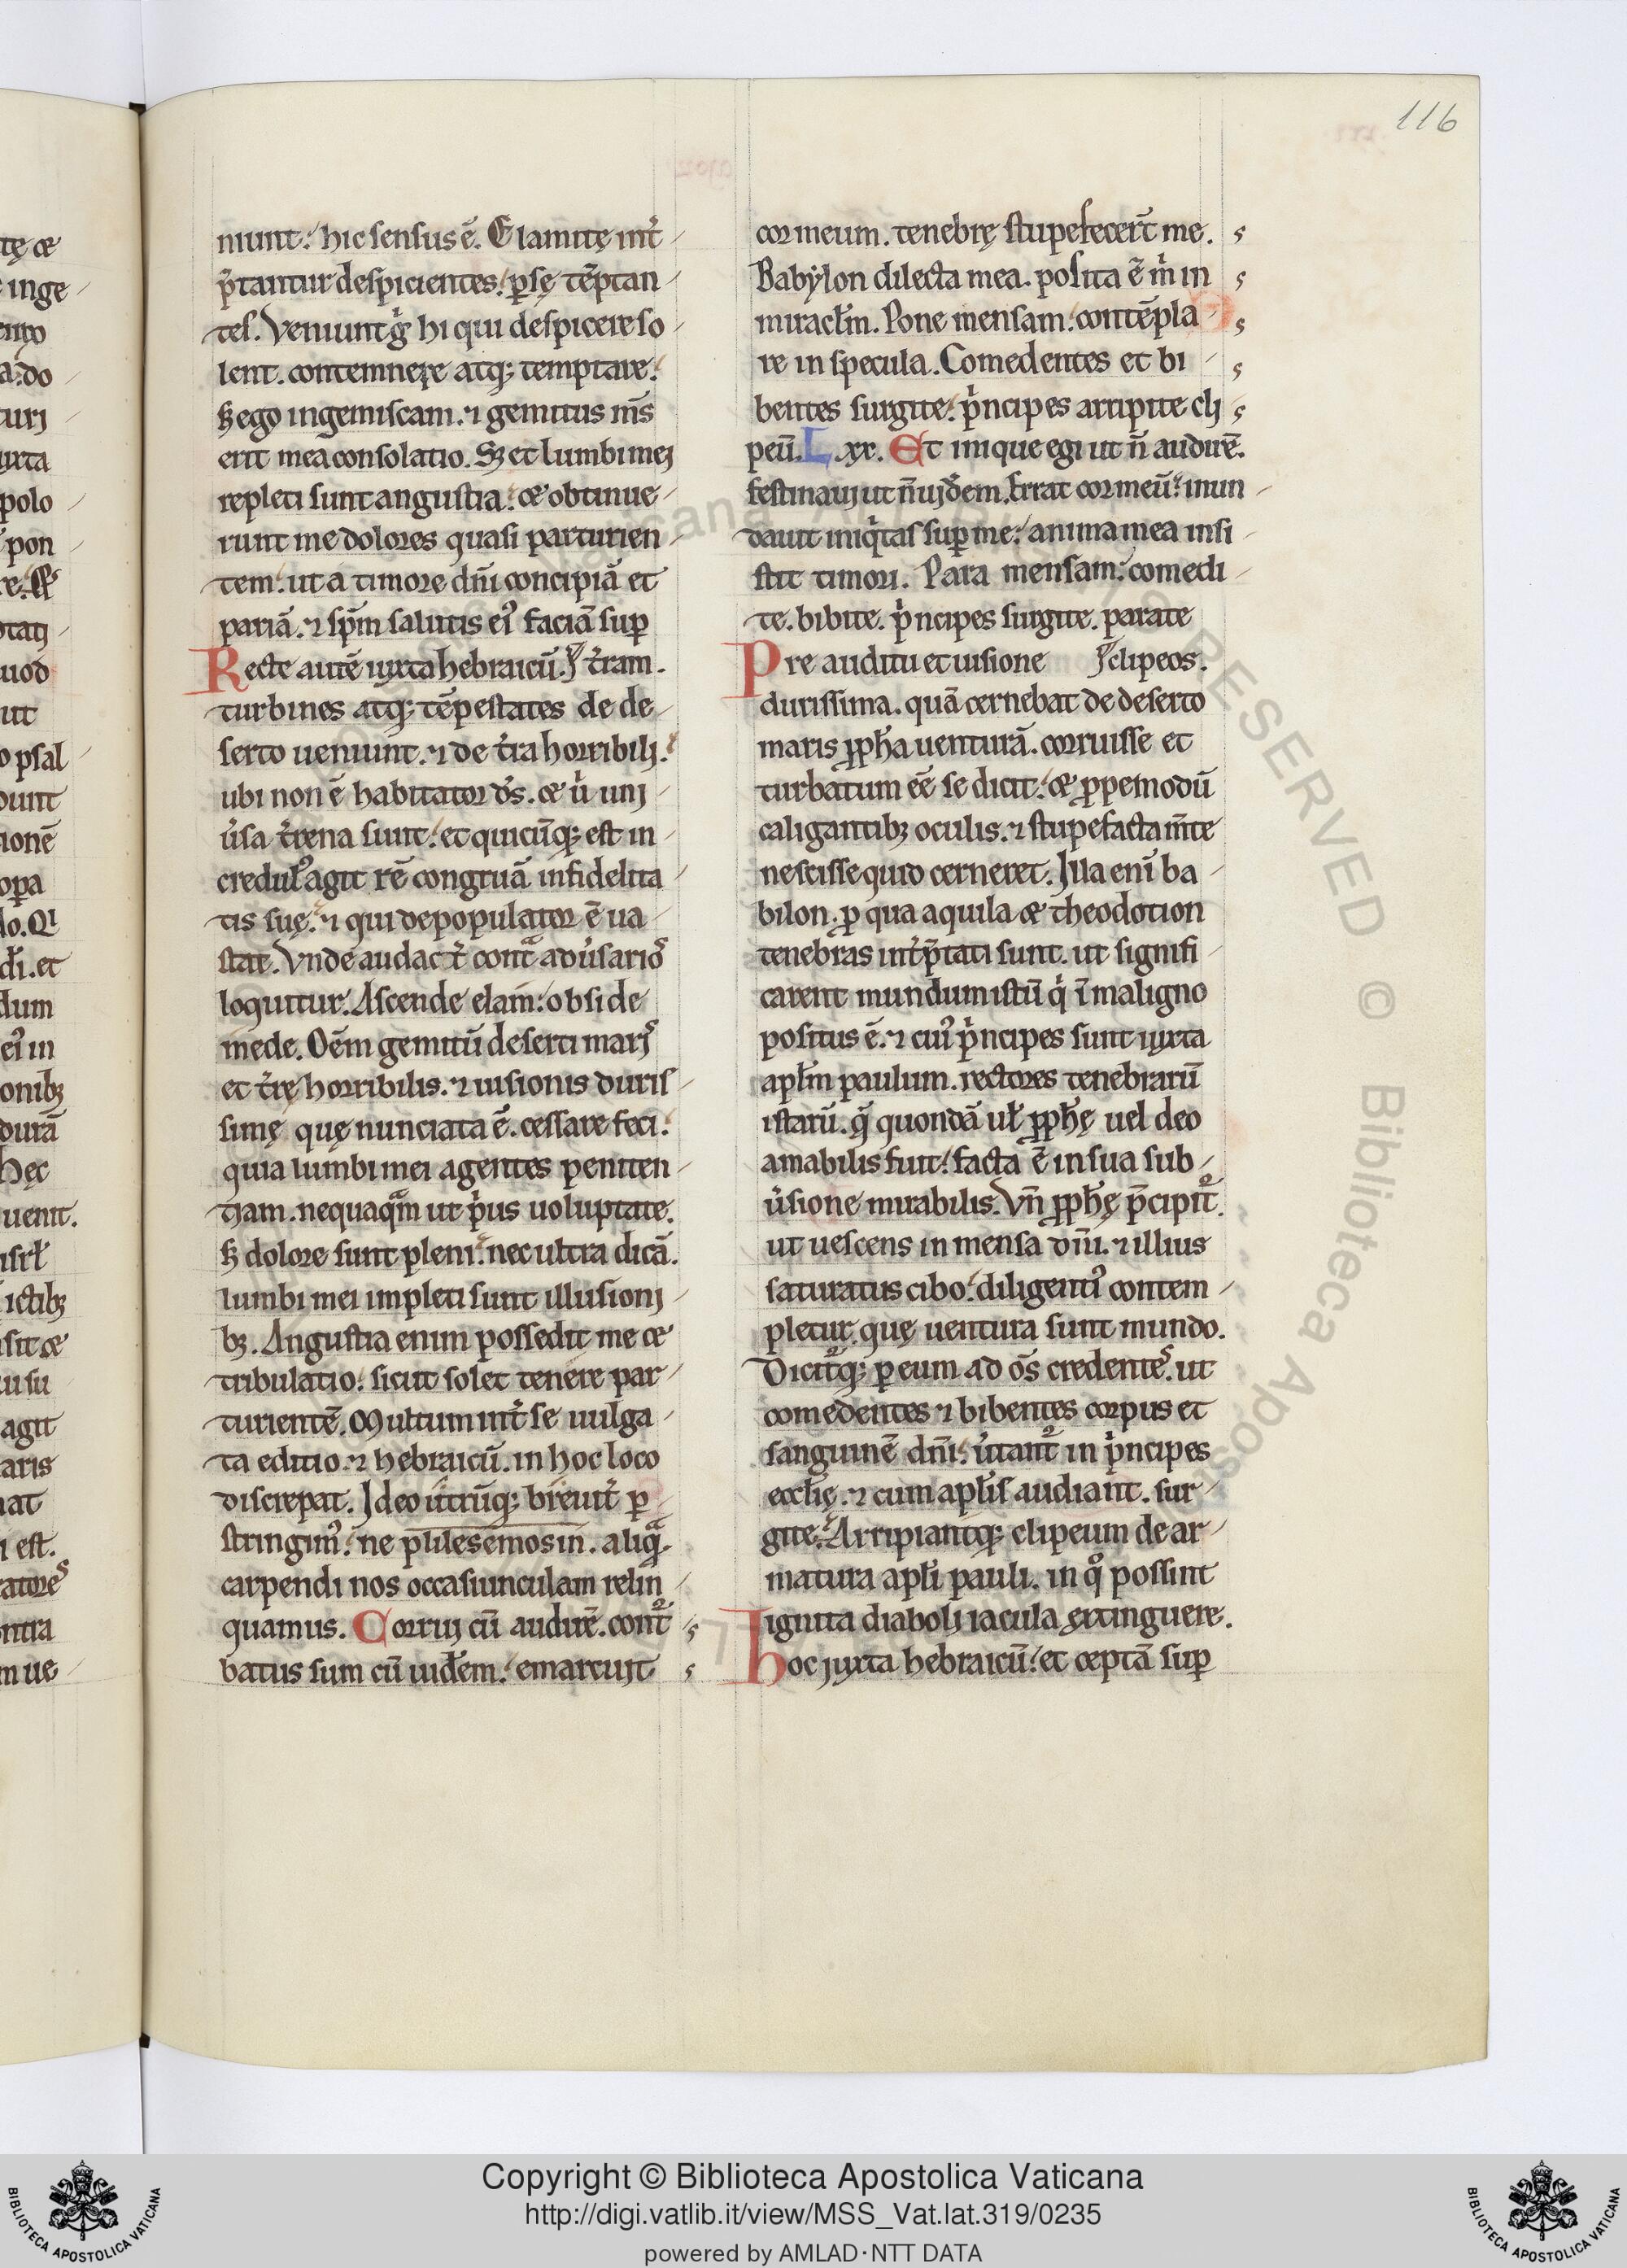 116
niunt. hic sensus ē. Elamitę int̄
p̄tantur despicientes. ꝑsę tēptan
tes. Veniunt g̊ hi qui despicere so
lent. contemnere atq; temptare.
sꝫ ego ingemiscam. ⁊ gemitus m̄s
erit mea consolatio. Sꝫ et lumbi mei
repleti sunt angustia. & obtinue
runt me dolores quasi parturien
tem. ut a timore dn̄i concipiā et
pariā. ⁊ sp̄m salutis eiꝰ faciā suꝑ
Recte autē iuxta hebraicū. t̄ram.
turbines atq; tēpestates de de
serto ueniunt. ⁊ de t̄ra horribili.
ubi non ē habitator d̄s. & u̍ uni
u̍sa t̄rena sunt. et quicūq; est in
credulꝰ agit rē congruā infidelita
tis suę. ⁊ qui depopulator ē ua
stat. Vnde audact̄ cont̄ adu̍sarios
loquitur. Ascende elam. obside
mede. Oēm gemitū deserti maris
et t̄rę horribilis. ⁊ uisionis duris
simę quę nunciata ē. cessare feci.
quia lumbi mei agentes peniten
tiam. nequaq̄m ut p̍us uoluptate.
sꝫ dolore sunt pleni. nec ultra dicā.
lumbi mei impleti sunt illusioni
bꝫ. Angustia enim possedit me &
tribulatio. sicut solet tenere par
turientē. Multum int̄ se uulga
ta editio. ⁊ hebraicū. in hoc loco
discrepat. Ideo ut̍rūq; breuit̄ ꝑ
stringimꝰ. ne p̄ lilesemosin. aliq̄
carpendi nos occasiunculam relin
quamus. Corrui cū audirē. cont̄
batus sum cū uidēem. emarcuit
cor meum. tenebrę stupefecer̄t me.
Babylon dilecta mea. posita ē m̍ in
miracl̄m. Pone mensam. contēpla
re in specula. Comedentes et bi
bentes surgite. p̍ncipes arripite cli
peū. L.xx. Et inique egi ut n̄ audirē.
festinaui ut n̄ uid̄em. Errat cor meū. inun
dauit iniq̍tas suꝑ me. anima mea insi
stit timori. Para mensam. comedi
te. bibite. p̍ncipes surgite. parate
Pre auditu et uisione clipeos.
durissima. quā cernebat de deserto
maris ꝓph̄a uenturā. corruisse et
turbatum eē se dicit. & ꝓpemodū
caligantibꝫ oculis. ⁊ stupefacta m̄te
nescisse quid cerneret. Illa eni̅ ba
bilon. ꝓ qua aquila & theodotion
tenebras int̄p̄tati sunt. ut signifi
carent mundum istū q̍ ī maligno
positus ē. ⁊ cuiꝰ p̍ncipes sunt iuxta
apl̄m paulum. rectores tenebrarū
istarū. q̄ quondā ul̄ ꝓph̄ę uel deo
amabilis fuit. facta ē in sua sub
u̍sione mirabilis. Vn̄ ꝓph̄ę p̄cipit̄.
ut uescens in mensa dn̄i. ⁊ illius
saturatus cibo. diligentiꝰ contem
pletur. quę uentura sunt mundo.
Dicit̄q; ꝑ eum ad os̄ credentes. ut
comedentes ⁊ bibentes corpus et
sanguinē dn̄i. u̍tant̄ in p̍ncipes
eccl̄ię. ⁊ cum apl̄is audiant. sur
gite. Arripiantq; clipeum de ar
matura apl̄i pauli. in q̊ possint
ignita diaboli iacula extinguere.
Hoc iuxta hebraicū. et ceptā suꝑ
Copyright © Biblioteca Apostolica Vaticana
http://digi.vatlib.it/view/MSS_Vat.lat.319/0235
powered by AMLAD·NTT DATA
BIBLIOTECA APOSTOLICA VATICANA
BIBLIOTECA APOSTOLICA VATICANA